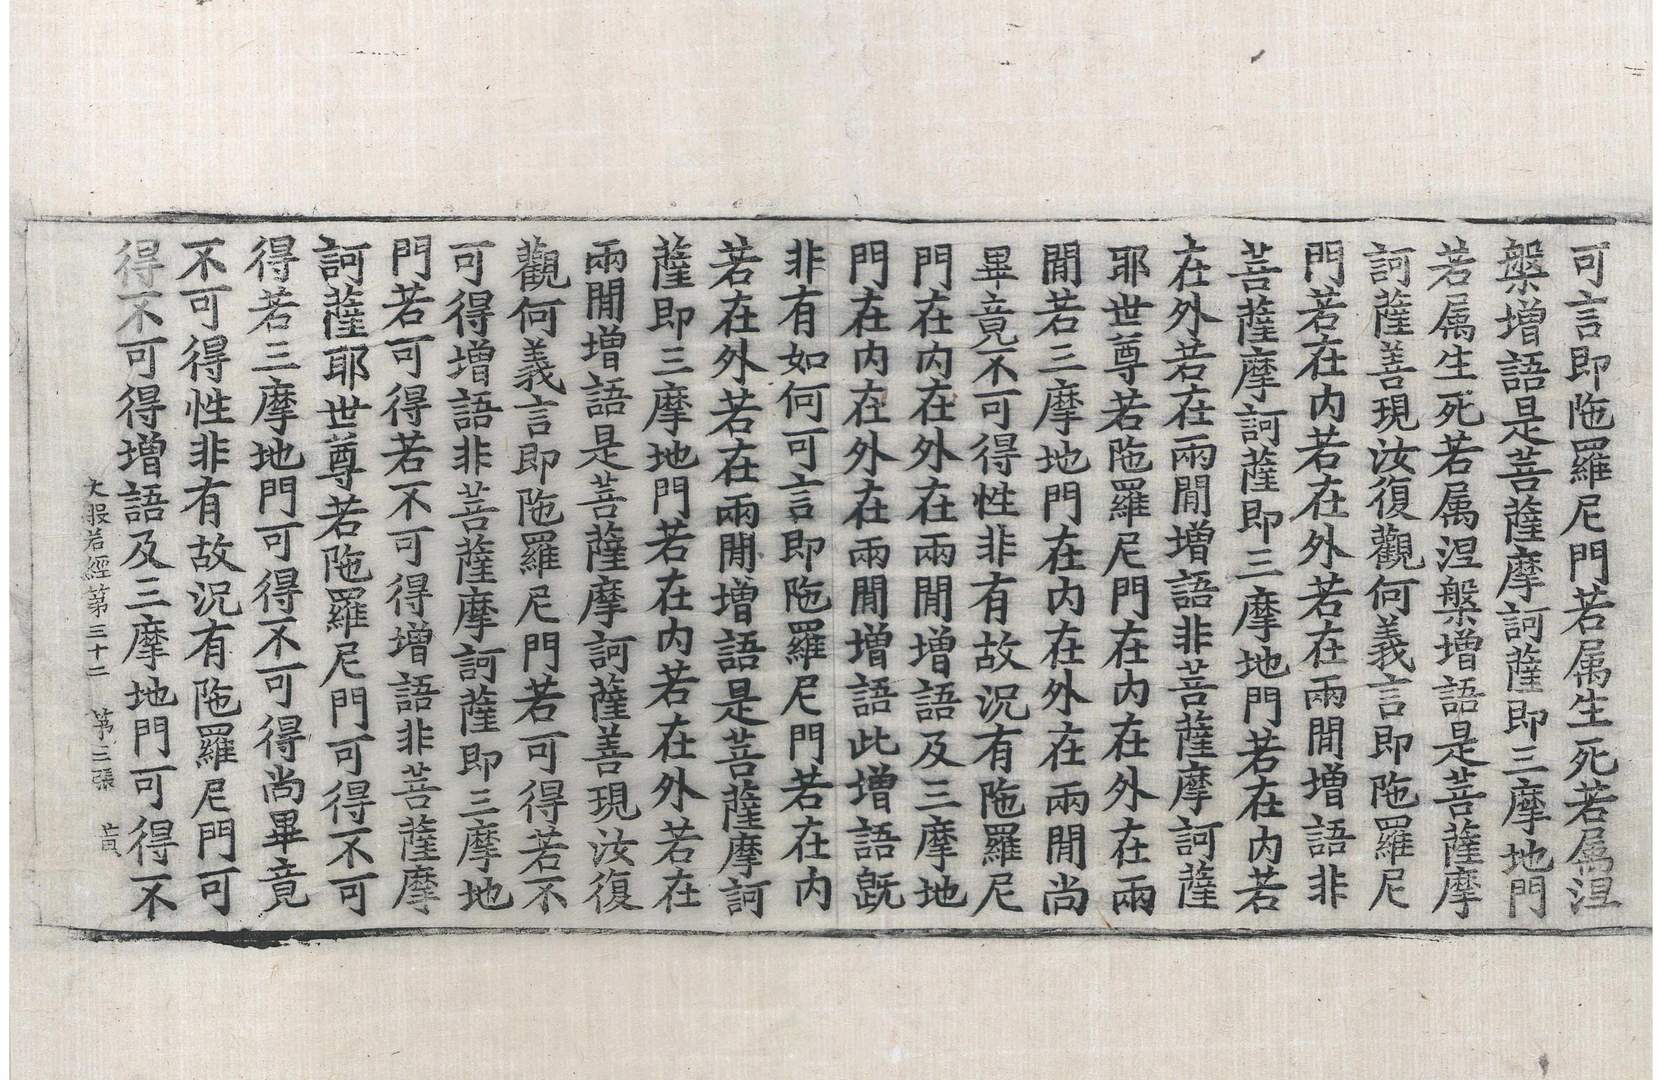 可言即陁羅尼門若属生死若属涅
槃增語是菩薩摩訶薩即三摩地門
若属生死若属涅槃增語是菩薩摩
訶薩善現汝復觀何義言即陁羅尼
門若在内若在外若在兩閒增語非
菩薩摩訶薩即三摩地門若在内若
在外若在兩閒增語非菩薩摩訶薩
耶世尊若陁羅尼門在内在外在兩
閒若三摩地門在内在外在兩閒尚
畢竟不可得性非有故況有陁羅尼
門在内在外在兩閒增語及三摩地
門在内在外在兩閒增語此增語旣
非有如何可言即陁羅尼門若在内
若在外若在兩閒增語是菩薩摩訶
薩即三摩地門若在内若在外若在
兩閒增語是菩薩摩訶薩善現汝復
觀何義言即陁羅尼門若可得若不
可得增語非菩薩摩訶薩即三摩地
門若可得若不可得增語非菩薩摩
訶薩耶世尊若陁羅尼門可得不可
得若三摩地門可得不可得尚畢竟
不可得性非有故況有陁羅尼門可
得不可得增語及三摩地門可得不
大般若經第三十二 第三張 黄